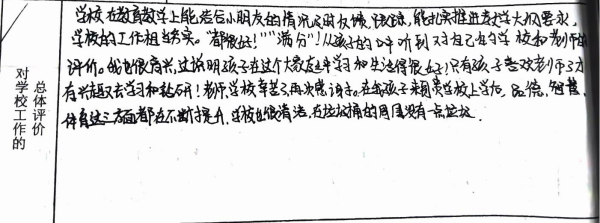 对学校工作的
总体评价
学校在教育教学上能结合小朋友的情况及时反馈,能扎实推进教学大纲要求,
学校的工作相当务实。"都很好!""满分"!从孩子的口中听到对自己的学校和老师的
评价。我也很高兴,这说明孩子在这个大家庭中学习和生活得很好!只有孩子喜欢老师了才
有兴趣去学习和钻研!老师学校辛苦了再次感谢。在的孩子来到贵学校上学后,品德,智慧,
体育这三方面都在不断提升,学校也很清洁,在垃圾桶的周围没有一点垃圾.